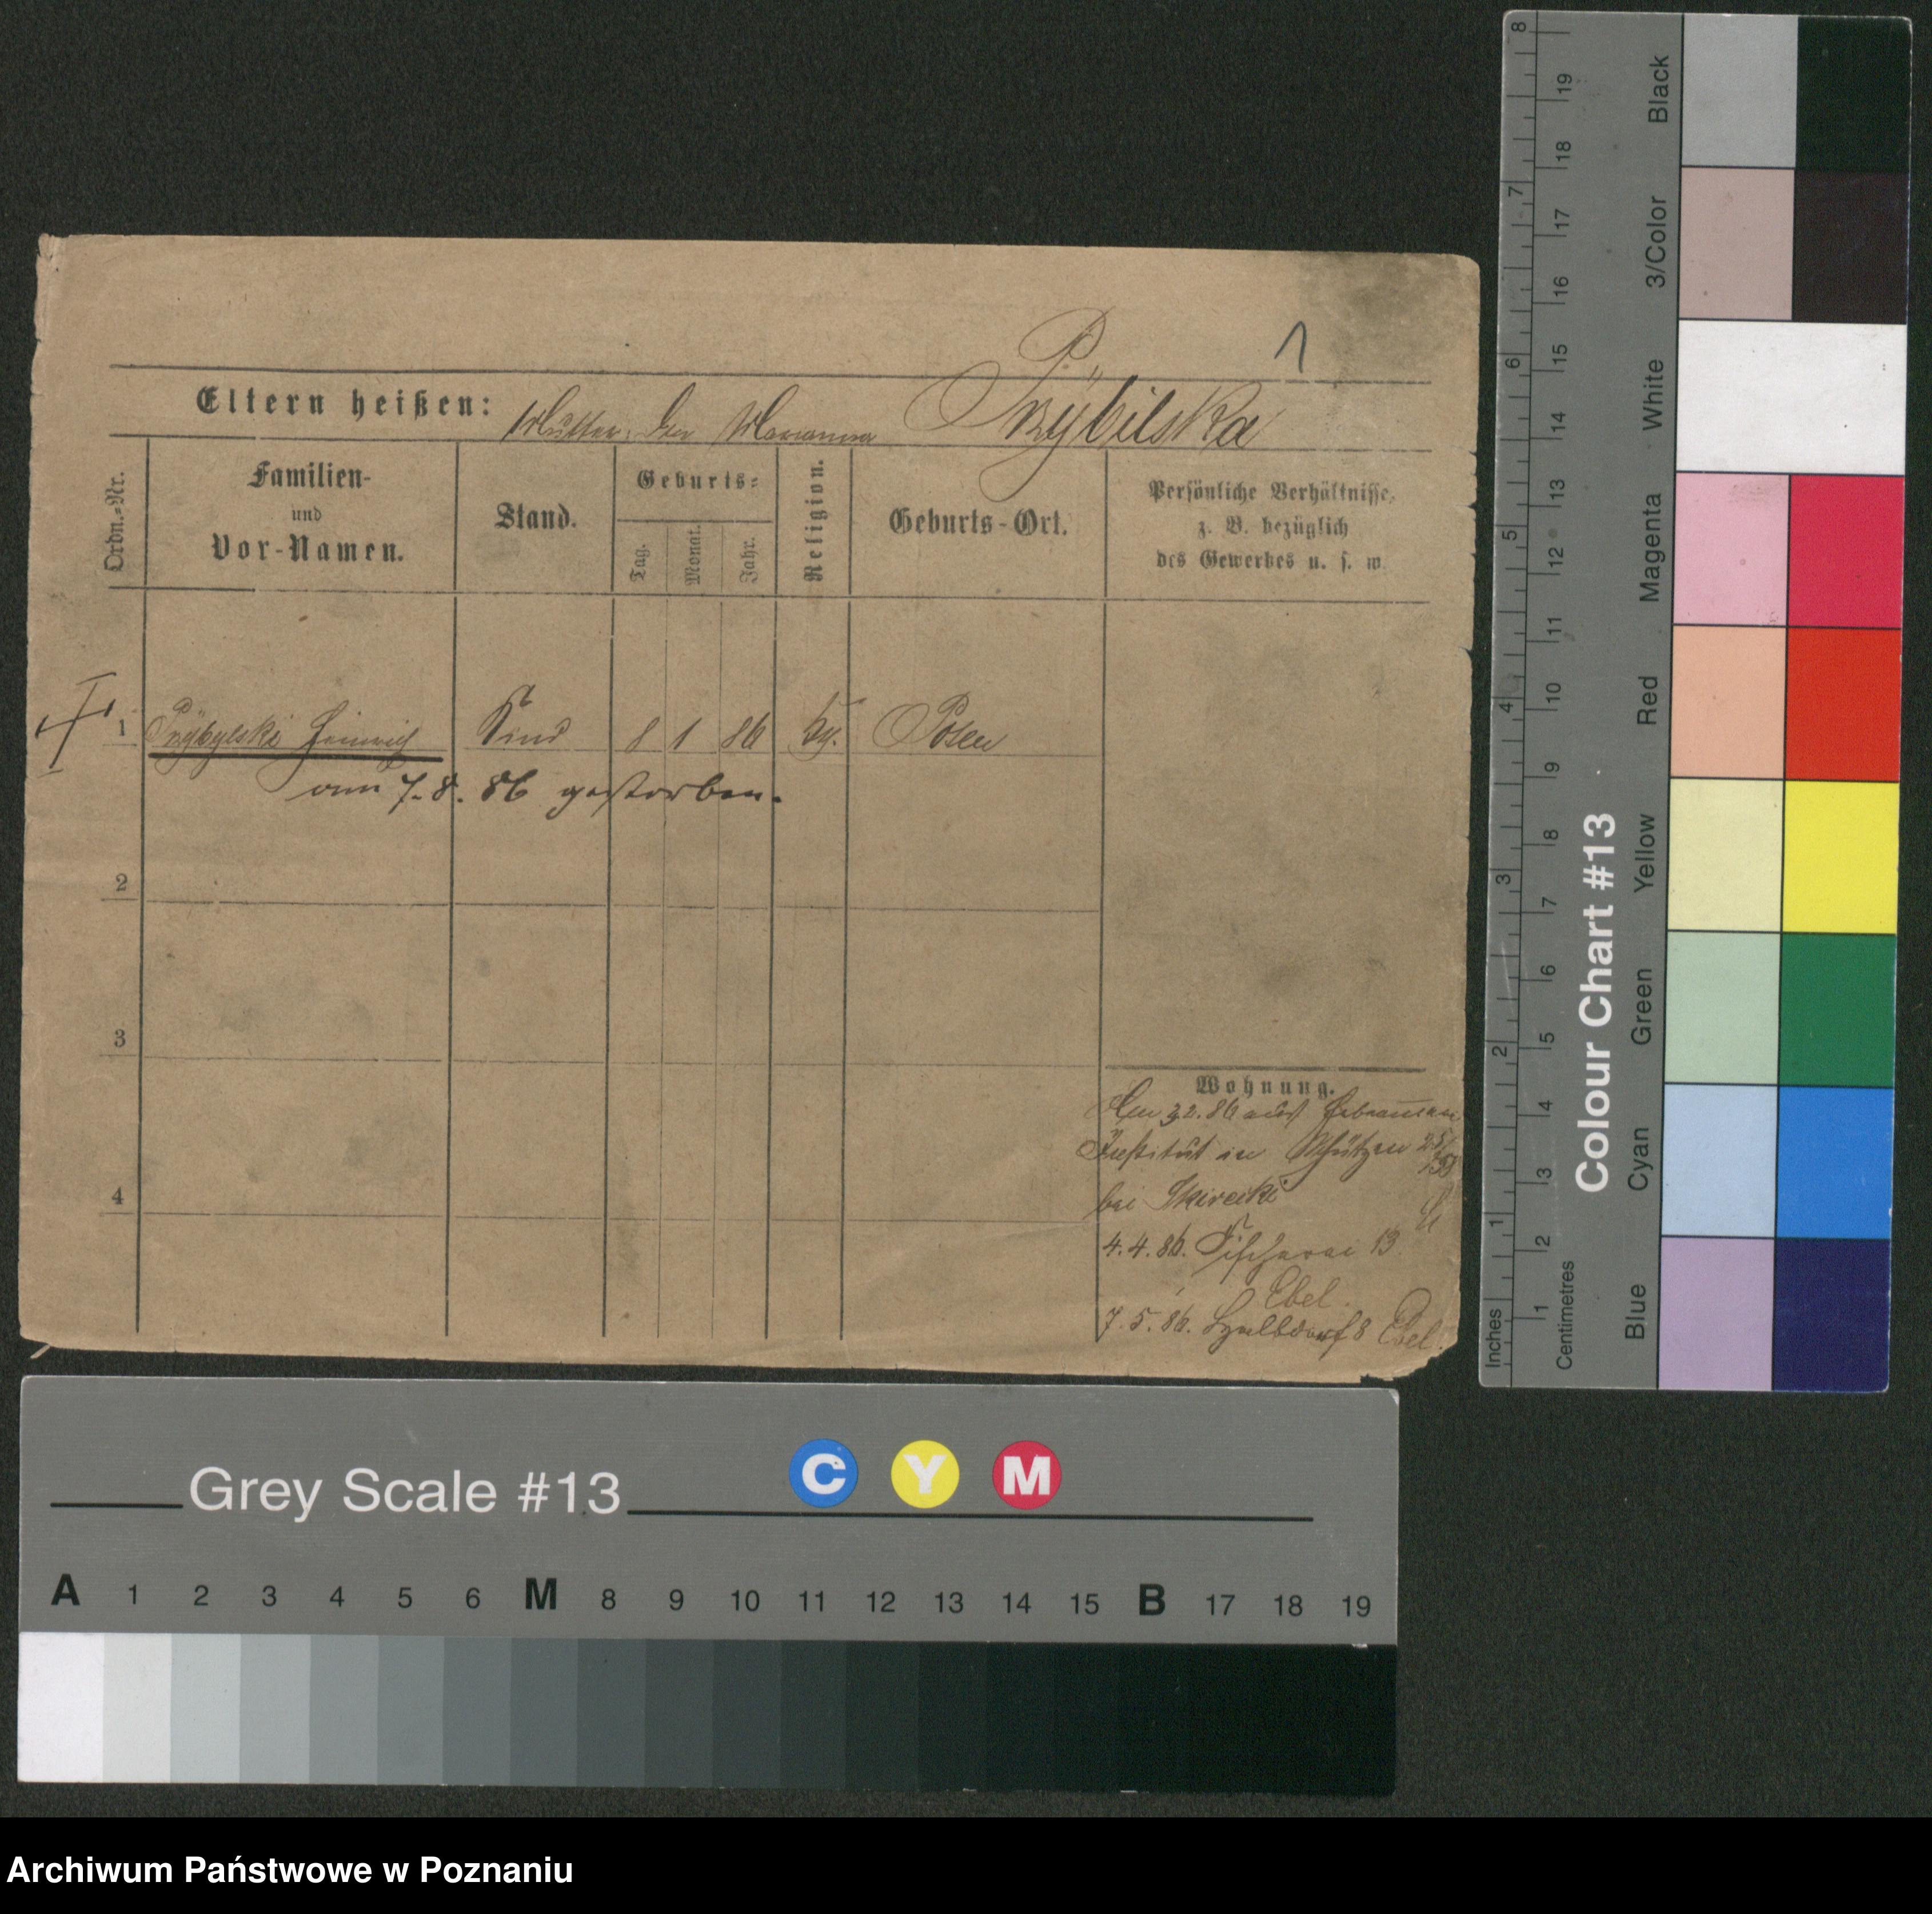 1
Eltern heißen: Mutter: Marianna Przÿbilska
Ordn.=Nr.
Familien-
und
Vor-Namen.
Stand.
Geburts=
Tag.
Monat.
Jahr.
Religion.
Geburts-Ort.
Persönliche Verhältnisse,
z. B. bezüglich
des Gewerbes u. s. w.
1 Przÿbylski Heinrich Kind 8 1 86 Posen
am 7.8.86 gestorben.
2
3
4
Wohnung.
86 aus Hebammen
Institut in Schützen
bei
4.4.86. Fischerei 13
Ebel.
7.5.86. Halbdorf 8 Ebel.
8
7
6
5
4
3
2
1
Inches
19
18
17
16
15
14
13
12
11
10
9
8
7
6
5
4
3
2
1
Centimetres
Colour Chart #13
Black
3/Color
White
Magenta
Red
Yellow
Green
Cyan
Blue
Grey Scale #13 C Y M
A 1 2 3 4 5 6 M 8 9 10 11 12 13 14 15 B 17 18 19
Archiwum Państwowe w Poznaniu